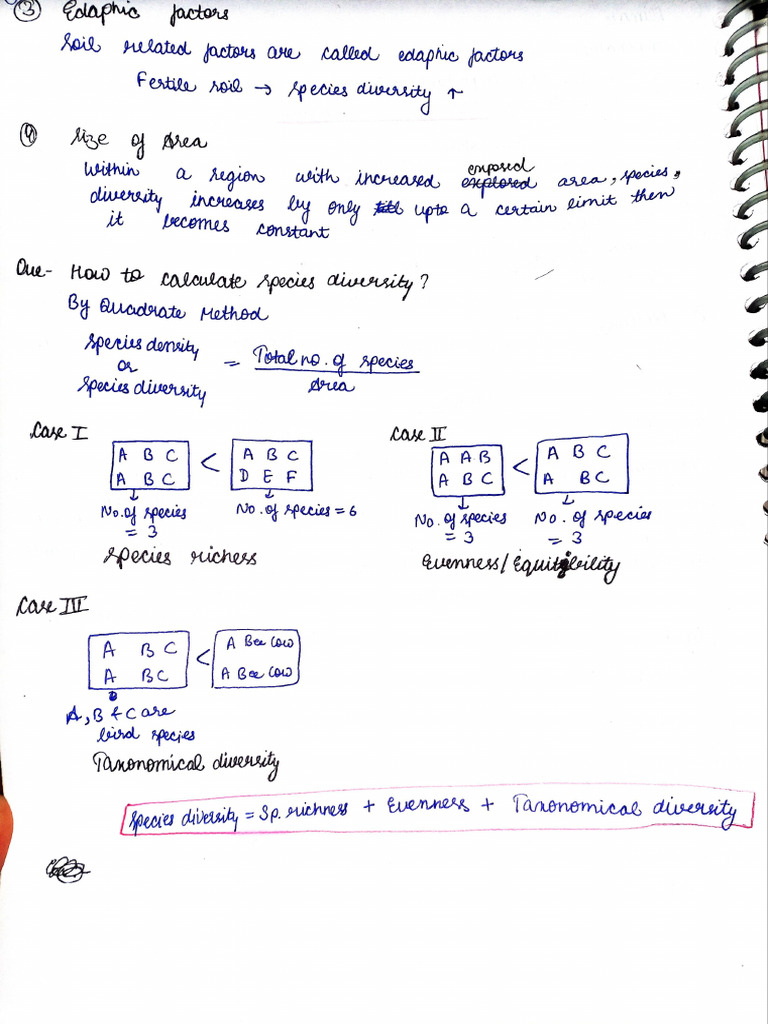 ③ Edaphic factors
Soil related factors are called edaphic factors
Fertile soil → species diversity ↑
④ Size of Area
Within a region with increased exposed area, species,
diversity increases by only upto a certain limit then
it becomes constant
Que- How to calculate species diversity?
By Quadrate Method
Species density or Species diversity = Total no. of species / Area
Case I
A B C
A B C
<
A B C
D E F
No. of species = 3
No. of species = 6
Species richess
Case II
A A B
A B C
<
A B C
A B C
No. of species = 3
No. of species = 3
Evenness/Equitibility
Case III
A B C
A B C
<
A Bee Cow
A Bee Cow
A, B & C are
bird species
Taxonomical diversity
Species diversity = Sp. richness + Evenness + Taxonomical diversity